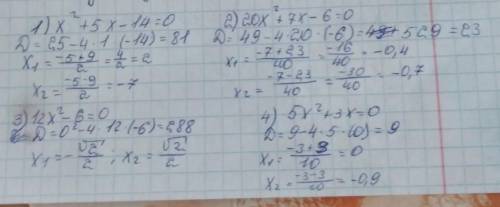 1) x² + 5x - 14 = 0
D = 25 - 4 · 1 (-14) = 81
x₁ = (-5+9)/2 = 4/2 = 2
x₂ = (-5-9)/2 = -7
2) 20x² + 7x - 6 = 0
D = 49 - 4 · 20 · (-6) = 529 = 23
x₁ = (-7+23)/40 = -16/40 = -0,4
x₂ = (-7-23)/40 = -30/40 = -0,7
3) 12x² - 6 = 0
D = 0² - 4 · 12 (-6) = 288
x₁ = -√2/2 ; x₂ = √2/2
4) 5x² + 3x = 0
D = 9 - 4 · 5 · (0) = 9
x₁ = (-3+3)/10 = 0
x₂ = (-3-3)/10 = -0,9